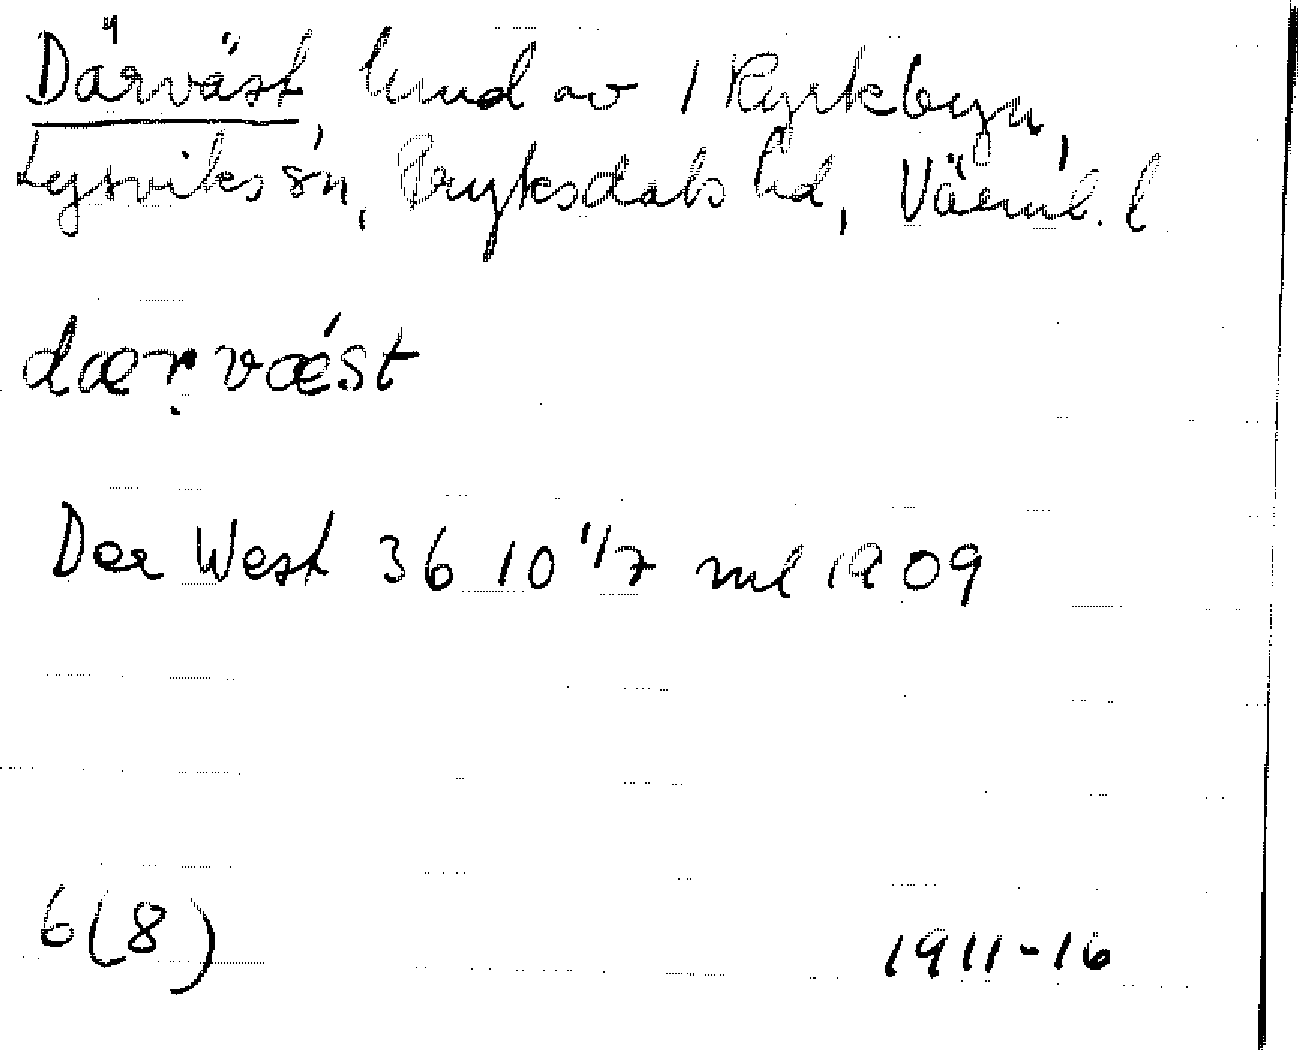 Därväst, hmd av 1 Kyrkbyn,
Lysviks sn, Fryksdals hd, Värml. l
dærvǽst
Der West 36 10 11/7 ml 1909
6(8) 1911-16